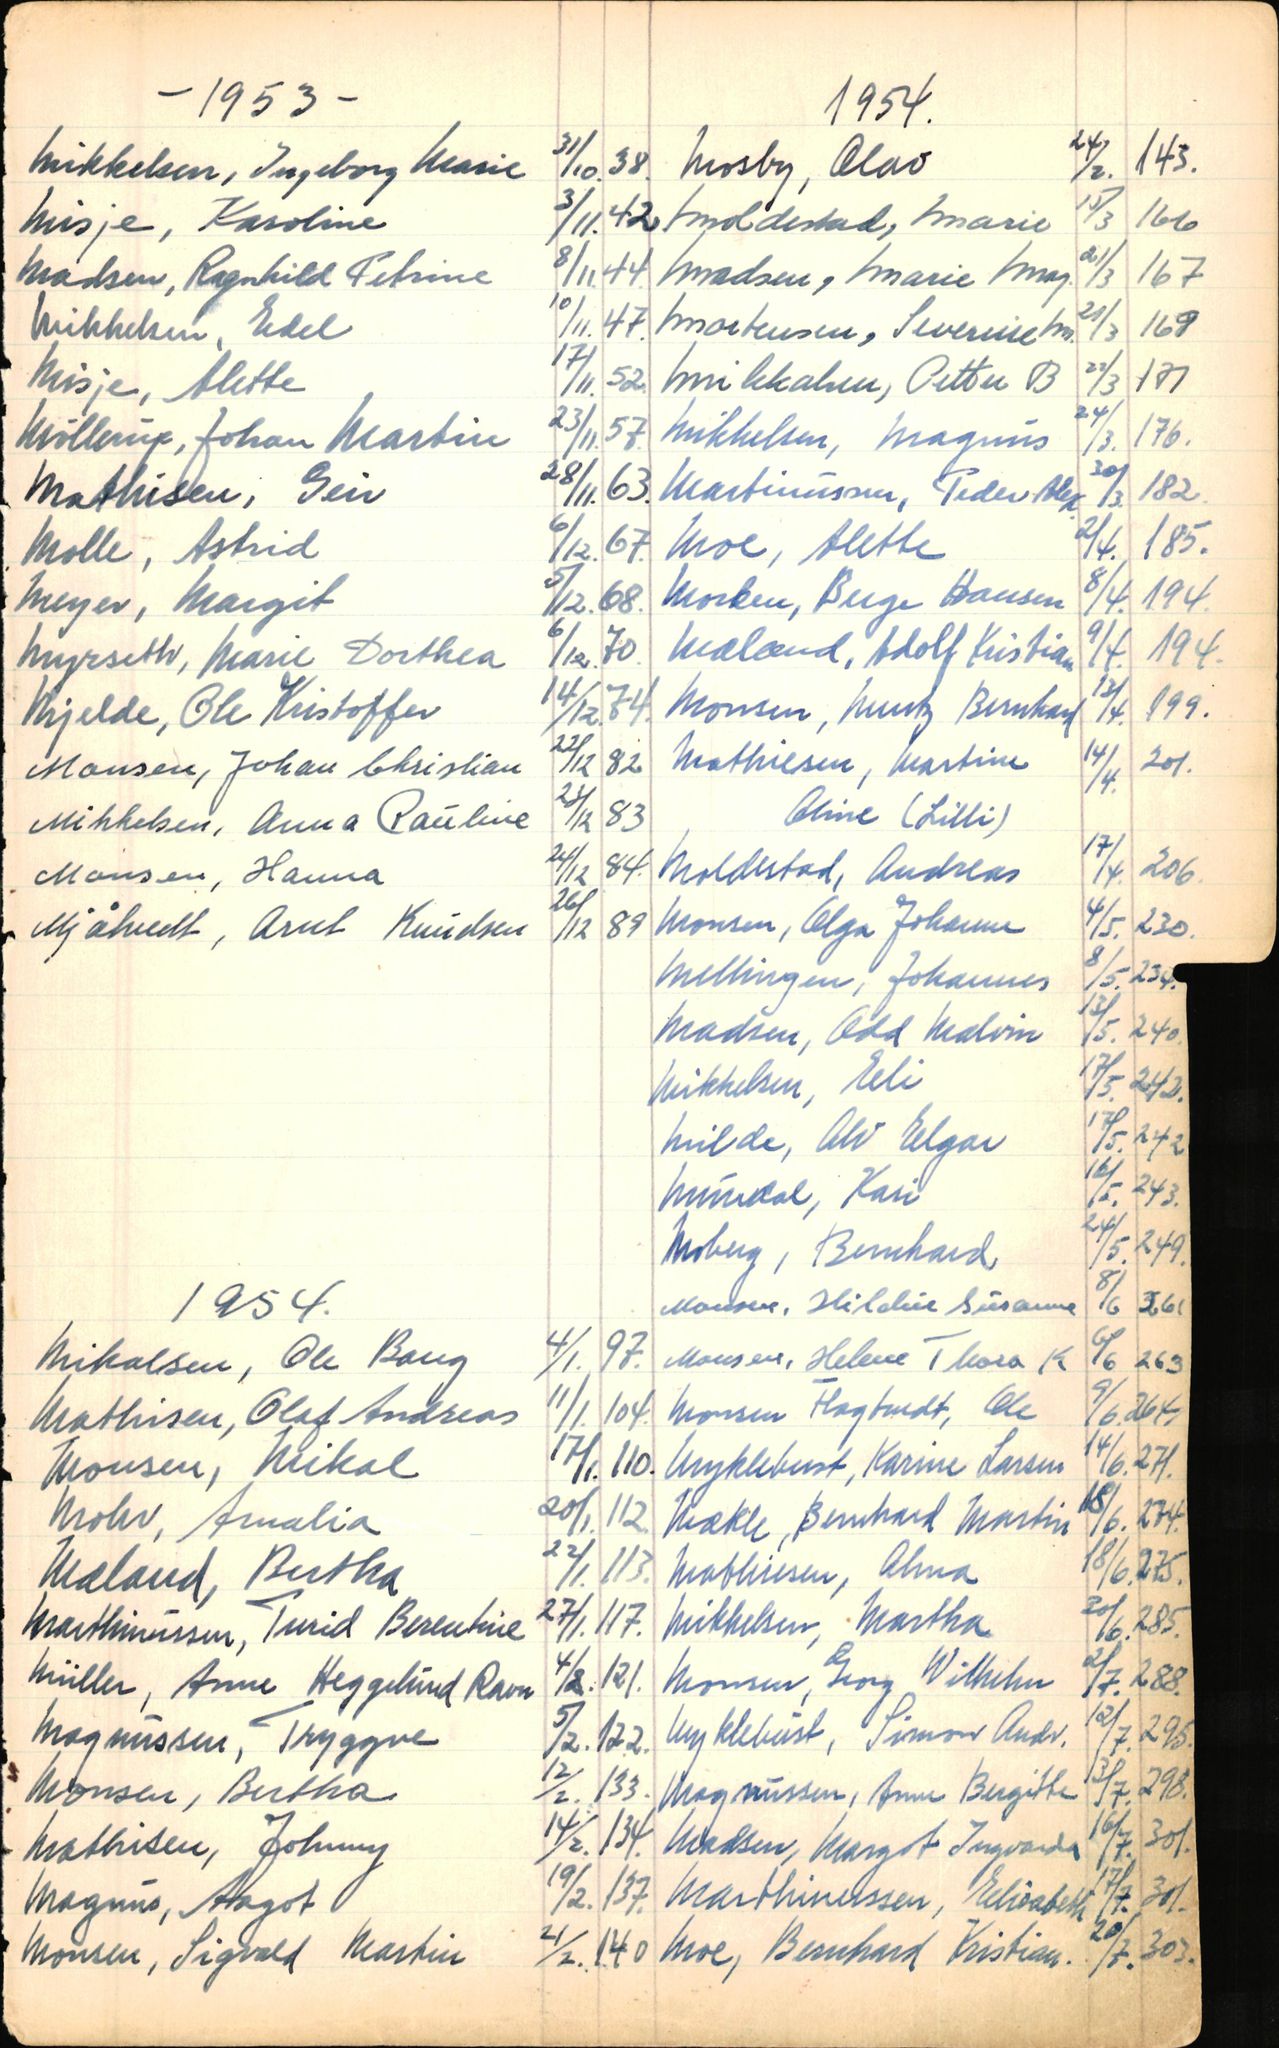 - 1953 -
Mikkelsen, Ingeborg Marie 31/10. 38.
Misje, Karoline 3/11. 42
Madsen, Ragnhild Petrine 8/11. 44.
Mikkelsen, Edel 10/11. 47.
Misje, Alette 17/11. 52.
Möllerup, Johan Martin 23/11. 57.
Mathisen, Geir 28/11. 63.
Molle, Astrid 6/12. 67.
Meyer, Margit 5/12. 68.
Myrseth, Marie Dorthea 6/12. 70.
Mjelde, Ole Kristoffer 14/12. 74.
Monsen, Johan Christian 22/12 82
Mikkelsen, Anna Pauline 23/12 83
Monsen, Hanna 24/12 84.
Mjåtvedt, Arnt Knudsen 26/12 89
1954.
Mikalsen, Ole Bang 4/1. 97.
Mathisen, Olaf Andreas 11/1. 104.
Monsen, Mikal 17/1. 110.
Mohr, Amalia 20/1. 112.
Mæland, Bertha 22/1. 113.
Marthinussen, Turid Berentine 27/1. 117.
Müller, Anne Heggelund Ravn 4/2. 121.
Magnussen, Tryggve 5/2. 122.
Monsen, Bertha 12/2. 133.
Mathisen, Johnny 14/2. 134.
Magnus, Aagot 19/2. 137.
Monsen, Sigvald Martin 21/2. 140
1954.
Mosby, Olav 24/2. 143.
Moldestad, Marie 15/3 166
Madsen, Marie Mag. 21/3 167
Mortensen, Severine M. 21/3 169
Mikkalsen, Petter B 22/3 171
Mikkelsen, Magnus 24/3. 176.
Martinussen, Peder Alex. 30/3. 182.
Moe, Alette 2/4. 185.
Morken, Berge Hansen 8/4. 194.
Mæland, Adolf Kristian 9/4. 194.
Monsen, Muntz Bernhard 13/4. 199.
Mathiesen, Martine 14/4. 201.
Oline (Lilli)
Moldestad, Andreas 17/4. 206.
Monsen, Olga Johanne 4/5. 230.
Mellingen, Johannes 8/5. 234.
Madsen, Odd Malvin 13/5. 240.
Mikkelsen, Elli 17/5. 242.
Milde, Alv Elgar 17/5. 242
Mundal, Kari 16/5. 243.
Moberg, Bernhard 24/5. 249.
Monsen, Hildur Susanne 8/6 261
Monsen, Helene Thora K 6/6 263
Monsen Flagtvedt, Ole 9/6. 264.
Myklebust, Karine Larsen 14/6. 271.
Mækle, Bernhard Martin 18/6. 274.
Mathiesen, Alma 18/6. 275.
Mikkelsen, Martha 30/6. 285.
Monsen, Georg Wilhelm 2/7. 288.
Myklebust, Simon Andr. 12/7. 295.
Magnussen, Anne Bergitte 13/7. 298.
Madsen, Margot Ingvarda 16/7. 301.
Marthinussen, Elisabeth 17/7. 301.
Moe, Bernhard Kristian. 20/7. 303.